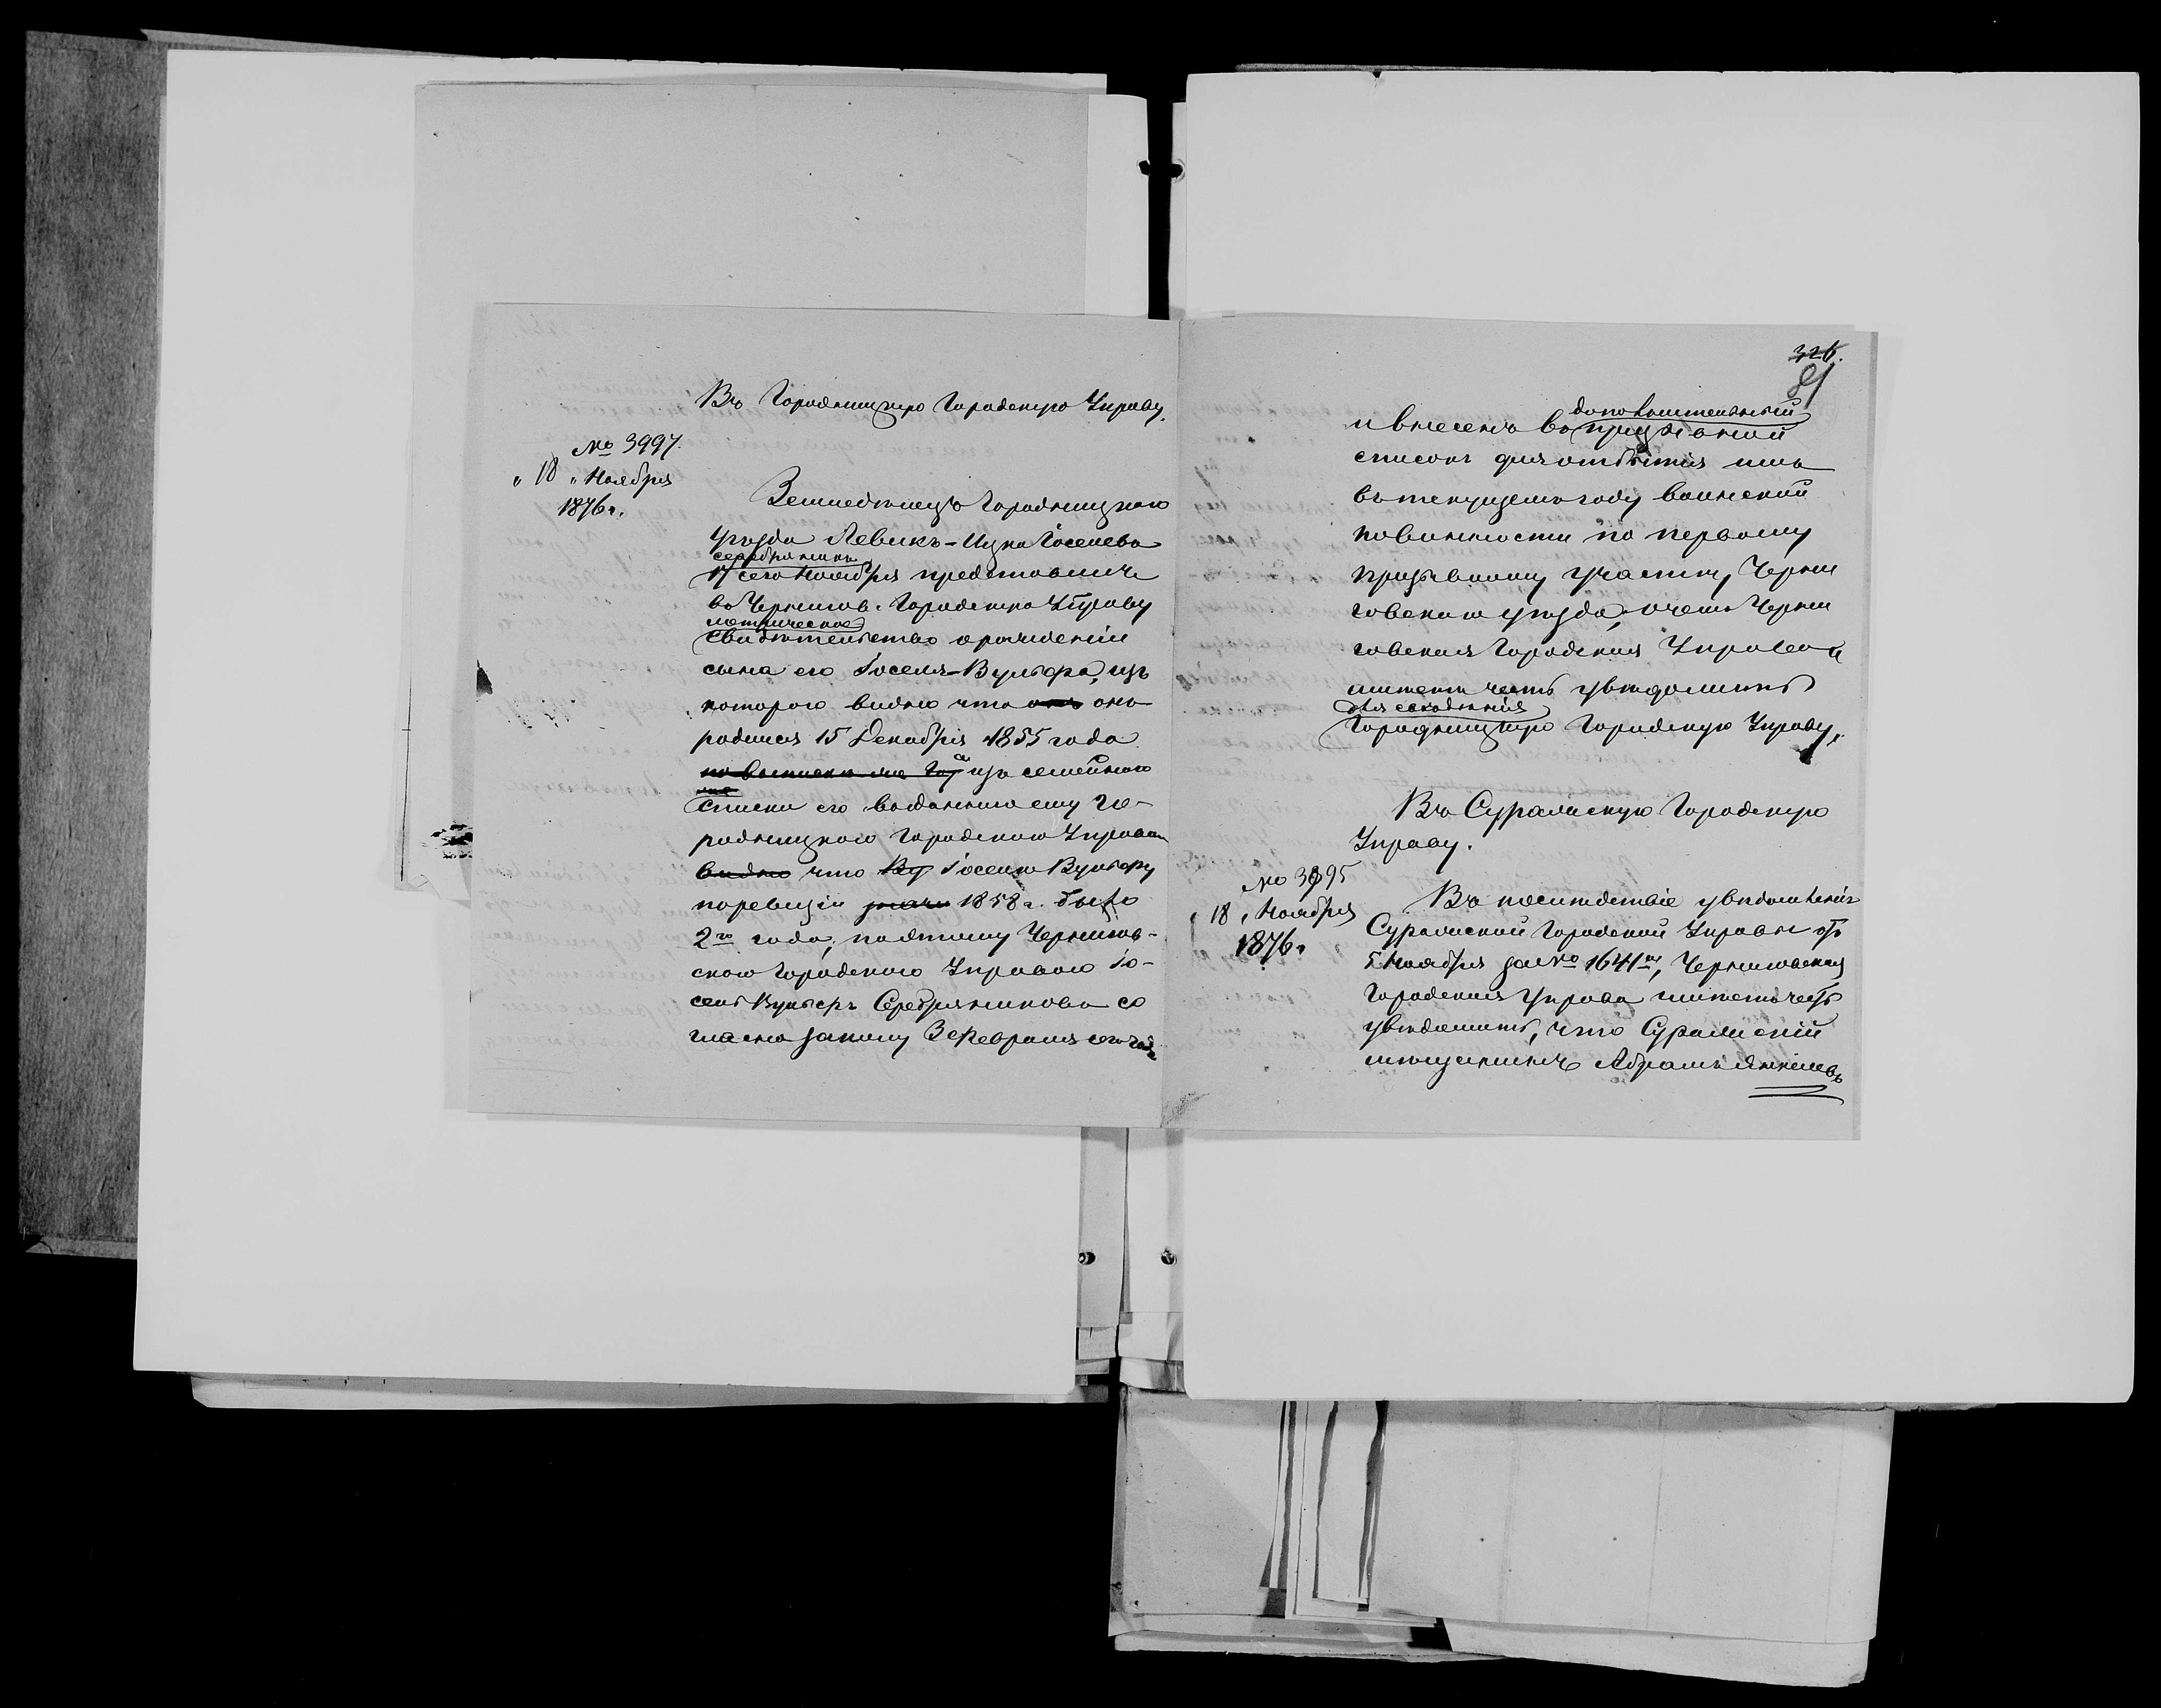 Въ Городницкую Городскую Управу.
№ 3997.
" 18 " Ноября
1876 г.
Земледелецъ Городницкаго
уѣзда Левикъ-Ицка Іоселевъ
Серебренникъ
17 сего Ноября представилъ
въ Чернигов. Городскую Управу
метрическое
свидѣтельство о рожденіи
сына его Іоселя-Вульфа, изъ
котораго видно что онъ онъ
родился 15 Декабря 1855 года
а изъ семейнаго
списка его выданнаго ему Го-
родницкого Городскою Управою
видно что Ву Іоселю Вульфу
по ревизіи 1858 г. было
2 го года, поэтому Чернигов-
скою Городскою Управою Іо-
сель Вульфъ Серебрянниковъ со
гласно закону 3 Февраля сего года
326.
81
дополнительный
и внесенъ въ призывной
списокъ для отбытія имъ
въ текущемъ году воинской
повинности по первому
призывному участку, Черни
говскаго уѣзда, о чемъ Черни
говская Городская Управа и
имѣетъ честь увѣдомить
для свѣдѣнія
Городницкую Городскую Управу.
Въ Суражскую Городскую
Управу.
№ 3995
" 18 " Ноября
1876 г.
Въ послѣдствіе увѣдомленія
Суражской Городской Управы отъ
5 Ноября за № 1641, Черниговская
Городская Управа имѣетъ честь
увѣдомить, что Суражскій
мѣщанинъ Абрамъ Янкелевъ